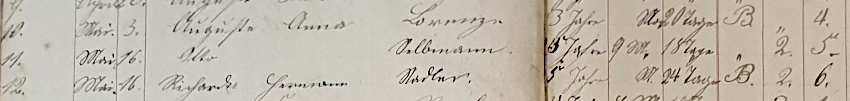 10. Mai. 3. Auguste Anna Lorenz 3 Jahre M. 20 Tage B. " 4.
11. Mai 16. Otto Selbmann. 5 Jahre 9 M. 18 Tage " 2. 5.
12. Mai. 16. Richard Hermann Stadler. 5 Jahre M. 24 Tage B. 2. 6.